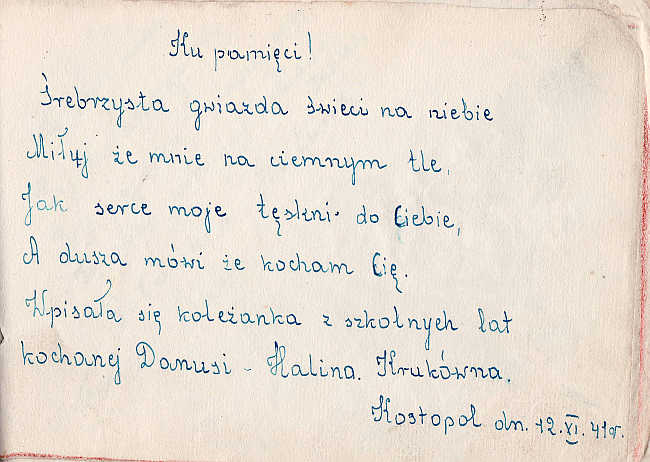 Ku pamięci!
Śrebrzysta gwiazda świeci na niebie
Miłuj że mnie na ciemnym tle,
Jak serce moje tęskni do Ciebie,
A dusza mówi że kocham Cię.
Wpisała się koleżanka z szkolnych lat
kochanej Danusi - Halina. Krukówna.
Kostopol dn. 12.XI.41r.